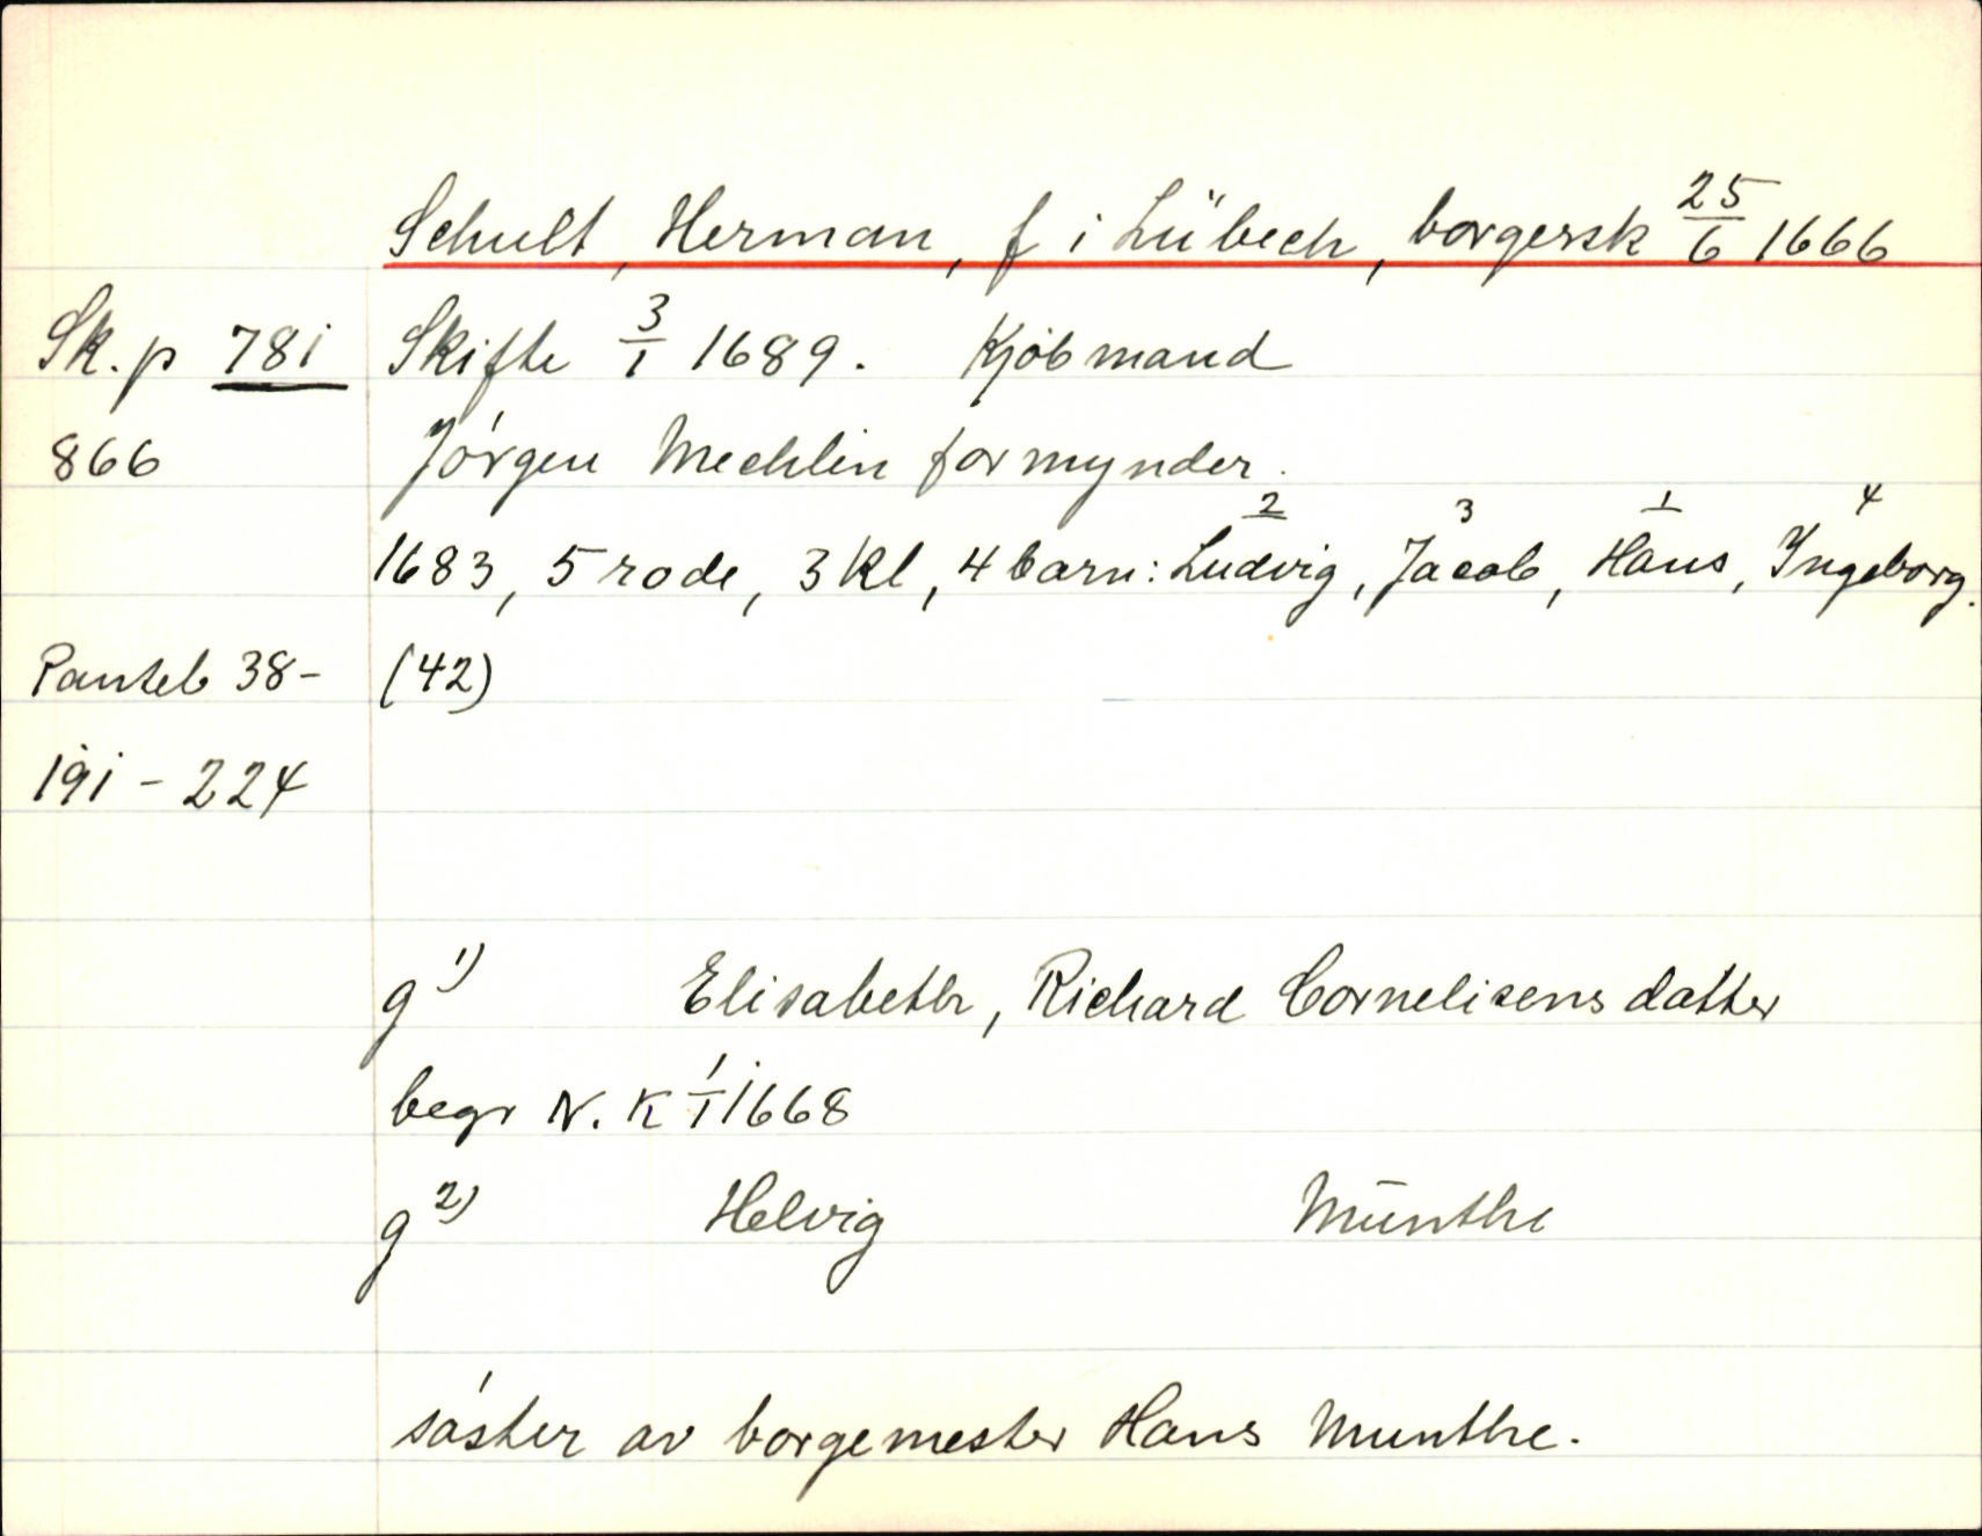 Schult, Herman, f i Lübech, borgersk 25/6 1666
Sk. p 781 Skifte 3/1 1689. Kjöbmand
866 Jörgen Mechlin formynder.
2 3 1 4
1683, 5 rode, 3 kl, 4 barn: Ludvig, Jacob, Hans, Ingeborg.
Panteb 38- (42)
191 - 224
g 1) Elisabeth, Richard Cornelisens datter
begr N. K 1/1 1668
g 2) Helvig Munthe
söster av borgemester Hans Munthe.